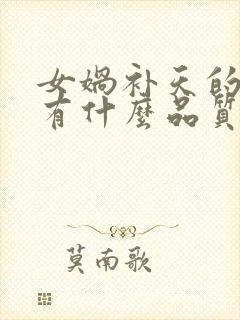 女娲补天的
有什麽品質
莫南歌